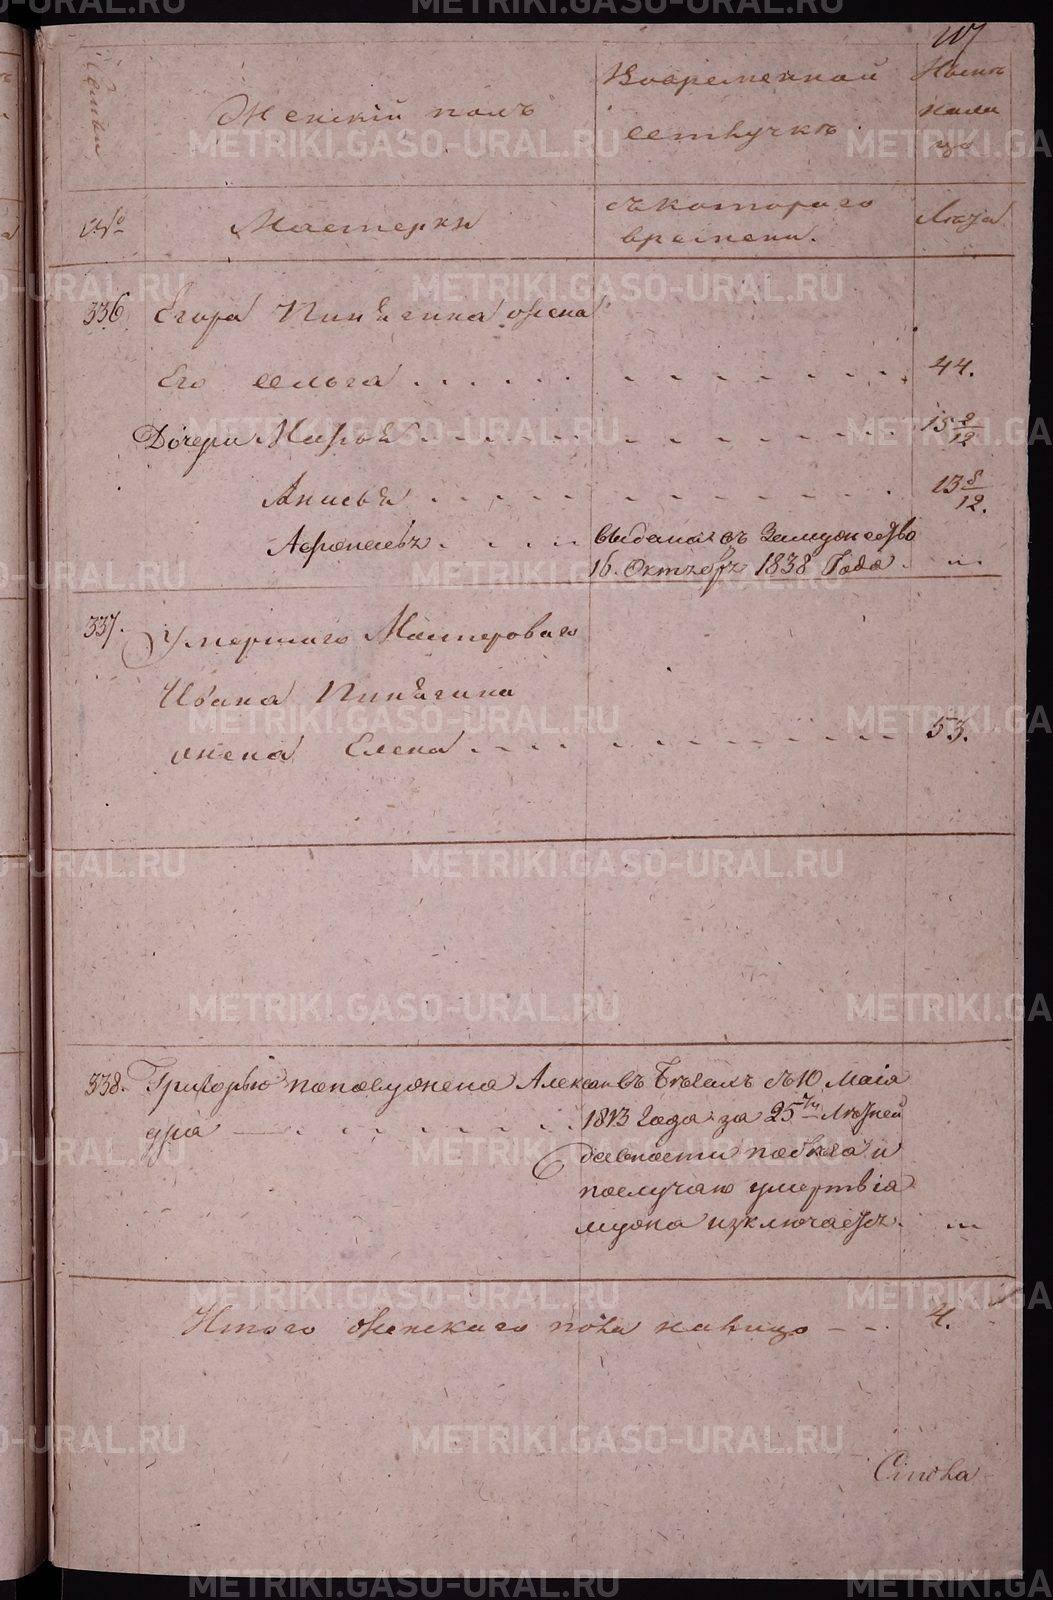 117
Семьи
Женскій полъ
Во временной
отлучкѣ
Нынѣ
нали
цо
№
Мастерки
съ котораго
времени.
Лѣта
336. Егора Пинягина жена
Его Ѳельга 44.
Дочери Марѳа 15 2/12
Анисья 13 8/12.
Аѳонасья выдана въ Замужество
16. Октября 1838 Года.
337. Умершаго Мастероваго
Ивана Пинягина
жена Елена 53.
338. Григорью попова жена Алексан въ бѣгахъ съ 10 Маія
дра 1813 Года за 25ти Лѣтней
давностію побѣга и
послучаю умертвія
мужа изключается.
Итого женскаго пола налицо 4.
METRIKI.GASO-URAL.RU